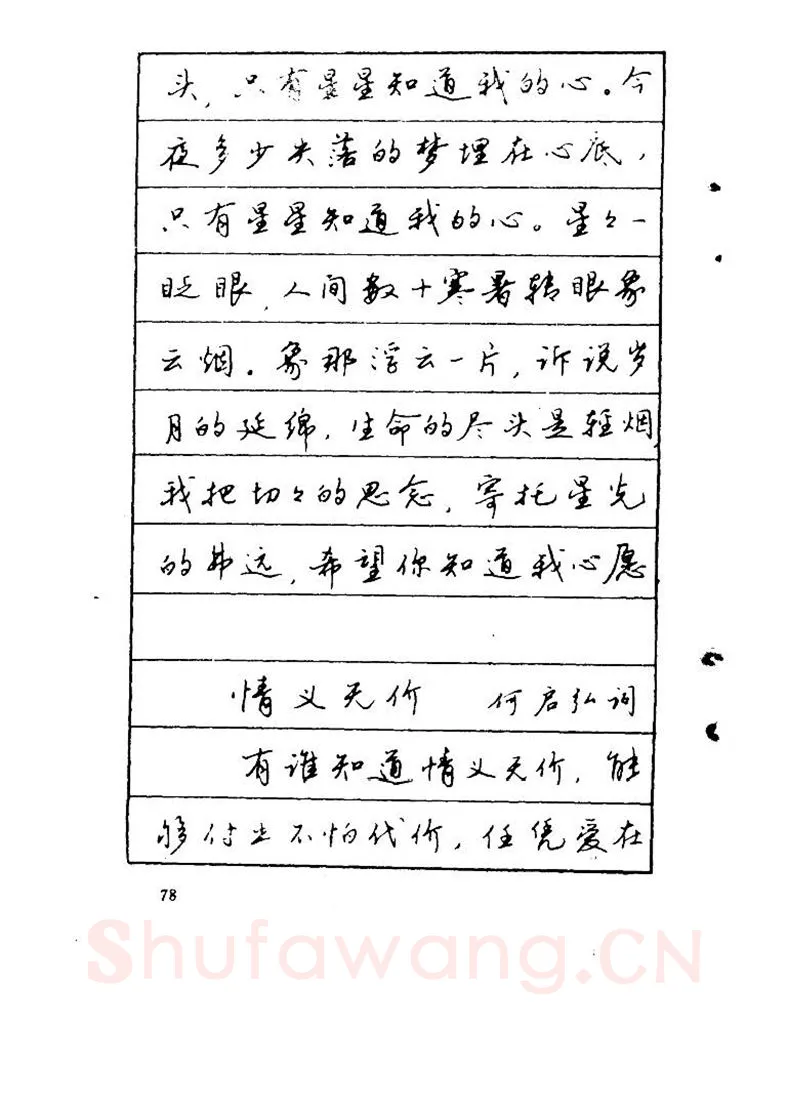 头，只有星星知道我的心。今
夜多少失落的梦埋在心底，
只有星星知道我的心。星々一
眨眼，人间数十寒暑转眼象
云烟。象那浮云一片，诉说岁
月的延绵，生命的尽头是轻烟，
我把切々的思念，寄托星光
的弗远，希望你知道我心愿
情义无价 何启弘词
有谁知道情义无价，能
够付出不怕代价，任凭爱在
78
Shufawang.CN